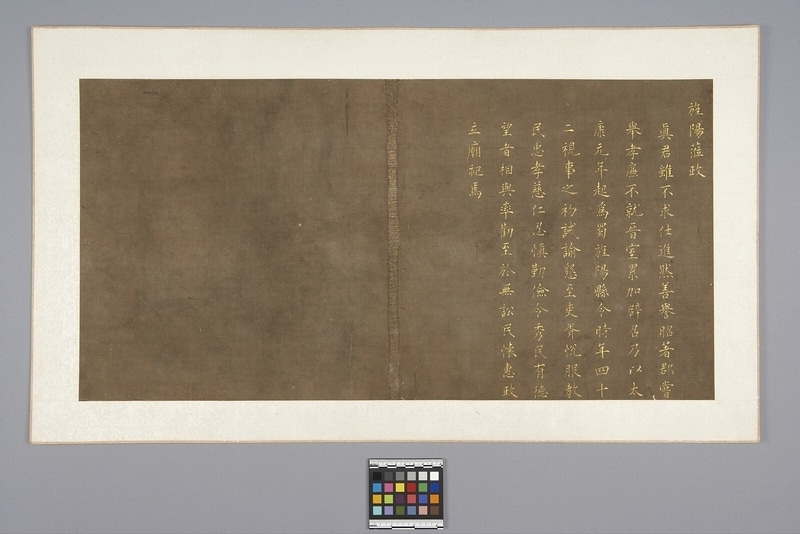 旌陽蒞政
真君雖不求仕進然善譽昭著郡嘗
舉孝廉不就晉室累加辟召乃以太
康元年起為蜀旌陽縣令時年四十
二視事之初誡諭懇至吏胥悅服教
民忠孝慈仁忍慎勤儉令秀民有德
望者相與率勸至於無訟民懷惠政
立廟祀焉